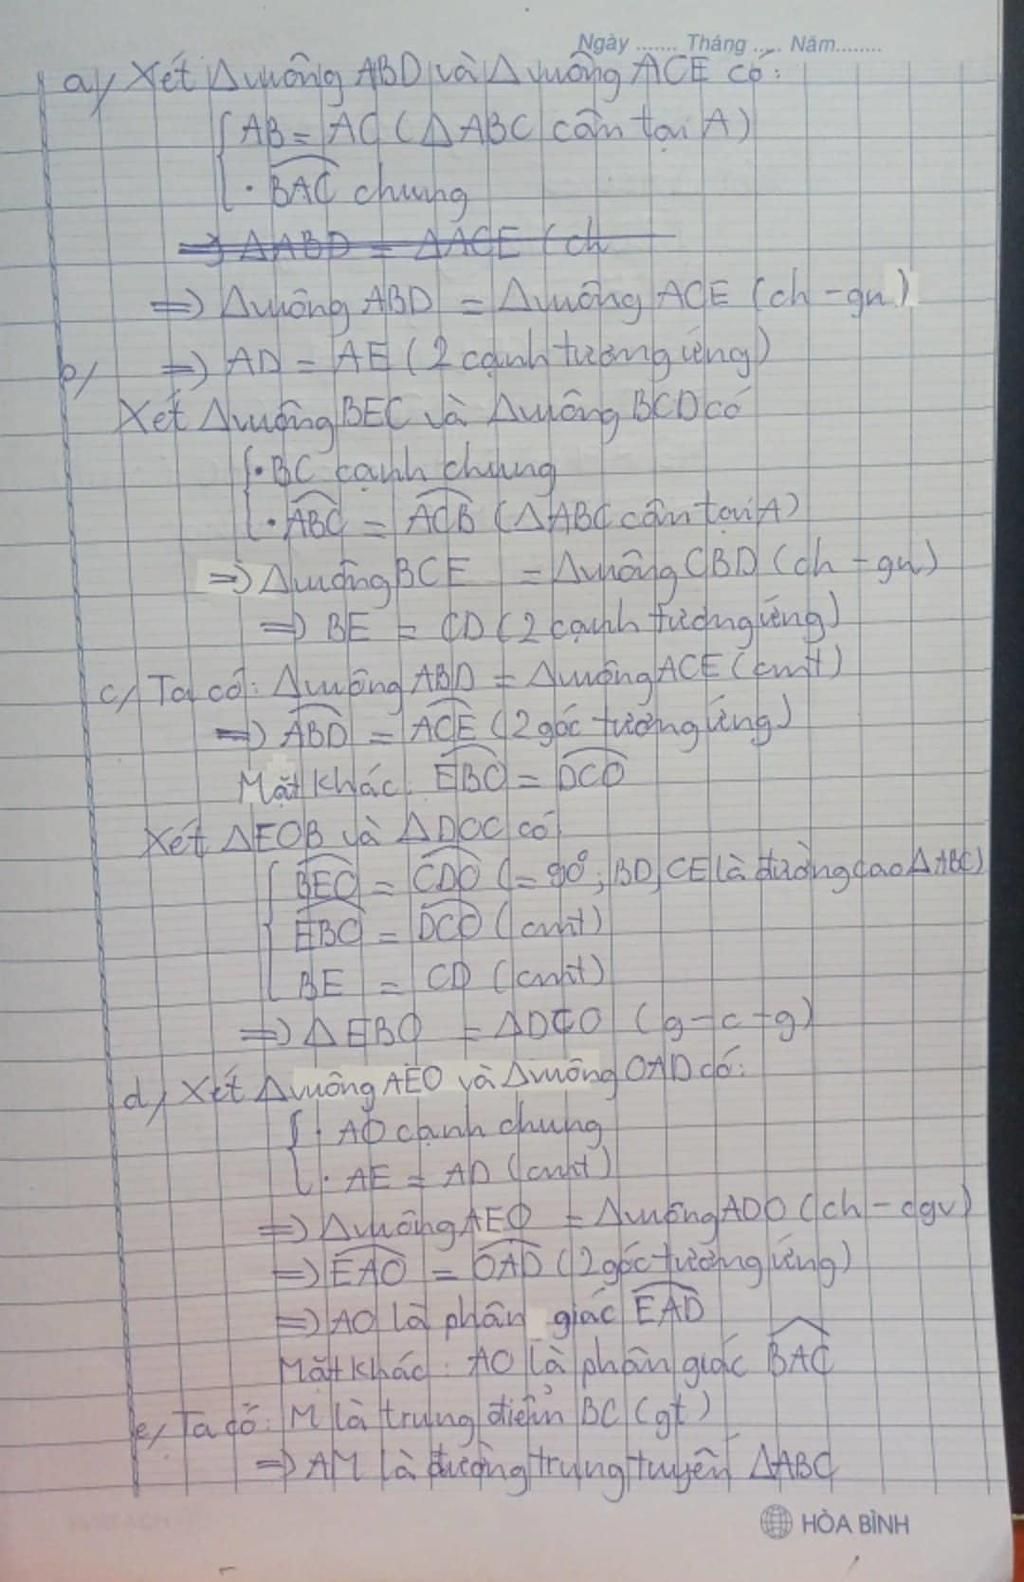 Ngày ....... Tháng ..... Năm........
a/ Xét Δ vuông ABD và Δ vuông ACE có:
{ AB = AC (Δ ABC cân tại A)
· BAC chung
=> ΔABD = ΔACE (ch
=> Δ vuông ABD = Δ vuông ACE (ch - gn)
=> AD = AE (2 cạnh tương ứng)
b/
Xét Δ vuông BEC và Δ vuông BCD có
{ · BC cạnh chung
· ABC = ACB (Δ ABC cân tại A)
=> Δ vuông BCE = Δ vuông CBD (ch - gn)
=> BE = CD (2 cạnh tương ứng)
c/ Ta có: Δ vuông ABD = Δ vuông ACE (cmt)
=> ABD = ACE (2 góc tương ứng)
Mặt khác: EBO = DCO
Xét ΔEOB và ΔDOC có
{ BEO = CDO (= 90°; BD, CE là đường cao ΔABC)
EBO = DCO (cmt)
BE = CD (cmt)
=> ΔEBO = ΔDCO (g - c - g)
d/ Xét Δ vuông AEO và Δ vuông OAD có:
{ · AO cạnh chung
· AE = AD (cmt)
=> Δ vuông AEO = Δ vuông ADO (ch - cgv)
=> EAO = OAD (2 góc tương ứng)
=> AO là phân giác EAD
Mặt khác: AO là phân giác BAC
e/ Ta có: M là trung điểm BC (gt)
=> AM là đường trung tuyến ΔABC
HÒA BÌNH